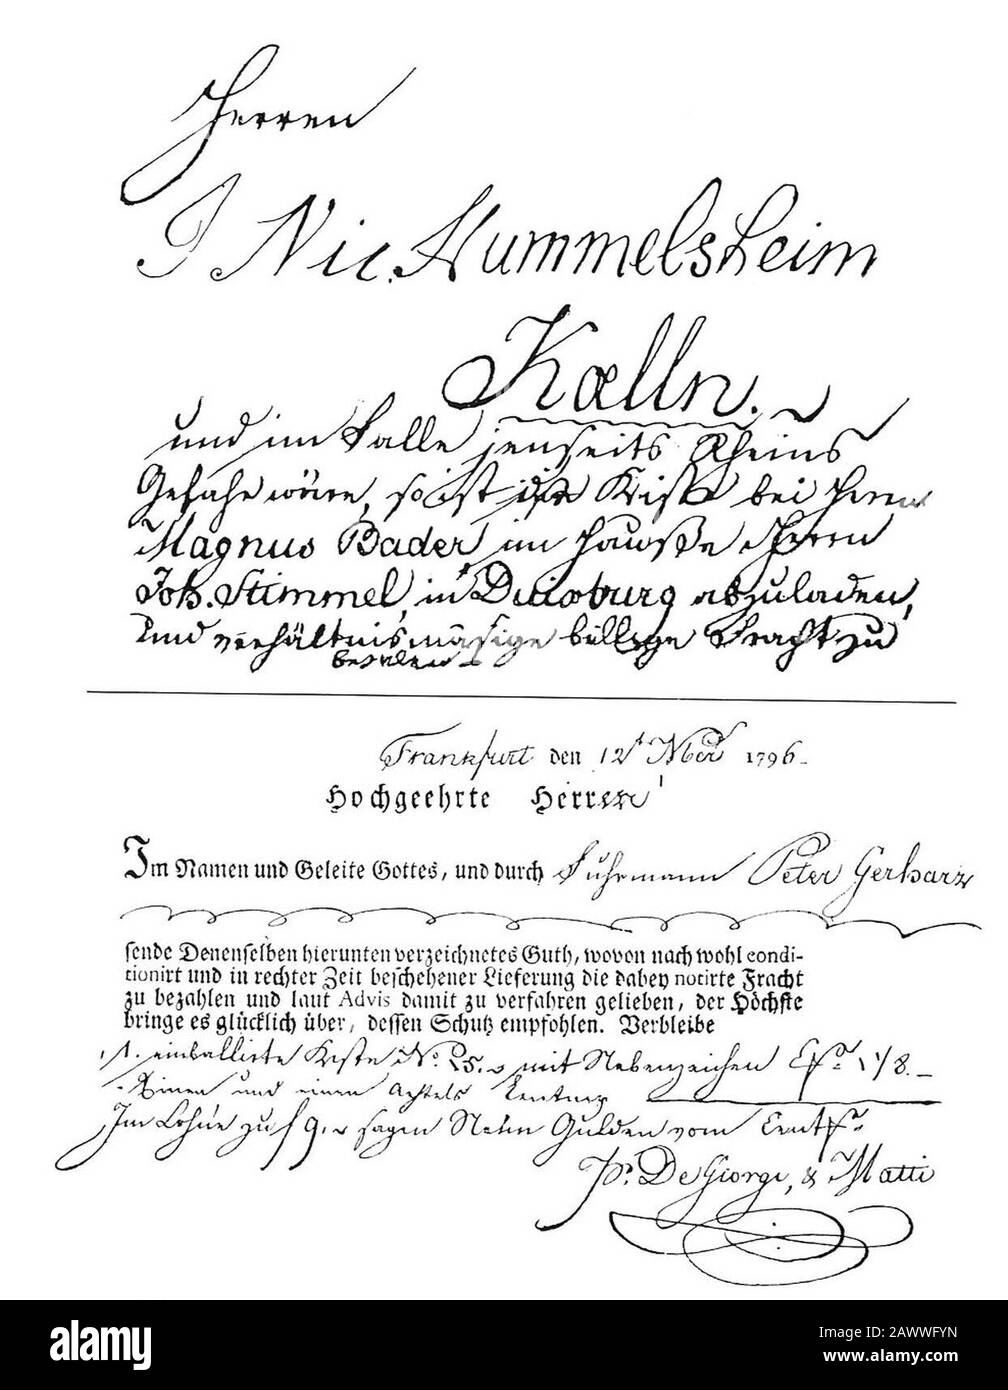 Herren
J Nic. Hummelsheim
Kœlln.
und im Falle jenseits Rheins
Gefahr wäre, so ist die Kiste bei Herrn
Magnus Bader im Hauße Herrn
Joh. Stimmel, in Duisburg abzuladen,
und verhältnismäsige billige Fracht zu
bezalen
Frankfurt den 12t Nbr 1796
Hochgeehrte Herren
Im Namen und Geleite Gottes, und durch Fuhrmann Peter Gerharz
sende Denenselben hierunten verzeichnetes Guth, wovon nach wohl condi-
tionirt und in rechter Zeit beschehener Lieferung die dabey notirte Fracht
zu bezahlen und laut Advis damit zu verfahren gelieben, der Höchste
bringe es glücklich über, dessen Schutz empfohlen. Verbleibe
1. einballirte Kiste No. 25. mit Nebenzeichen 1 1/8.
Einen und einen Achtels Centner
Im Lohne zu f 9. sagen Neün Gulden vom Cent
De Giorgi, & Matti
alamy
Image ID: 2AWWFYN
www.alamy.com